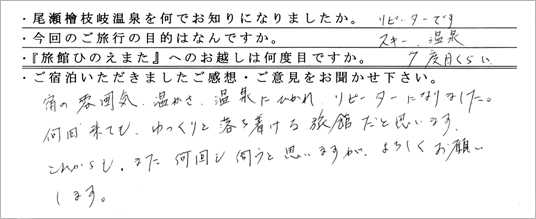 ・尾瀬檜枝岐温泉を何でお知りになりましたか。 リピーターです
・今回のご旅行の目的はなんですか。 スキー、温泉
・『旅館ひのえまた』へのお越しは何度目ですか。 7度目くらい
・ご宿泊いただきましたご感想・ご意見をお聞かせ下さい。
宿の雰囲気、温かさ、温泉にひかれ、リピーターになりました。
何回来ても、ゆっくりと落ち着ける旅館だと思います。
これからも、また何回も伺うと思いますが、よろしくお願い
します。